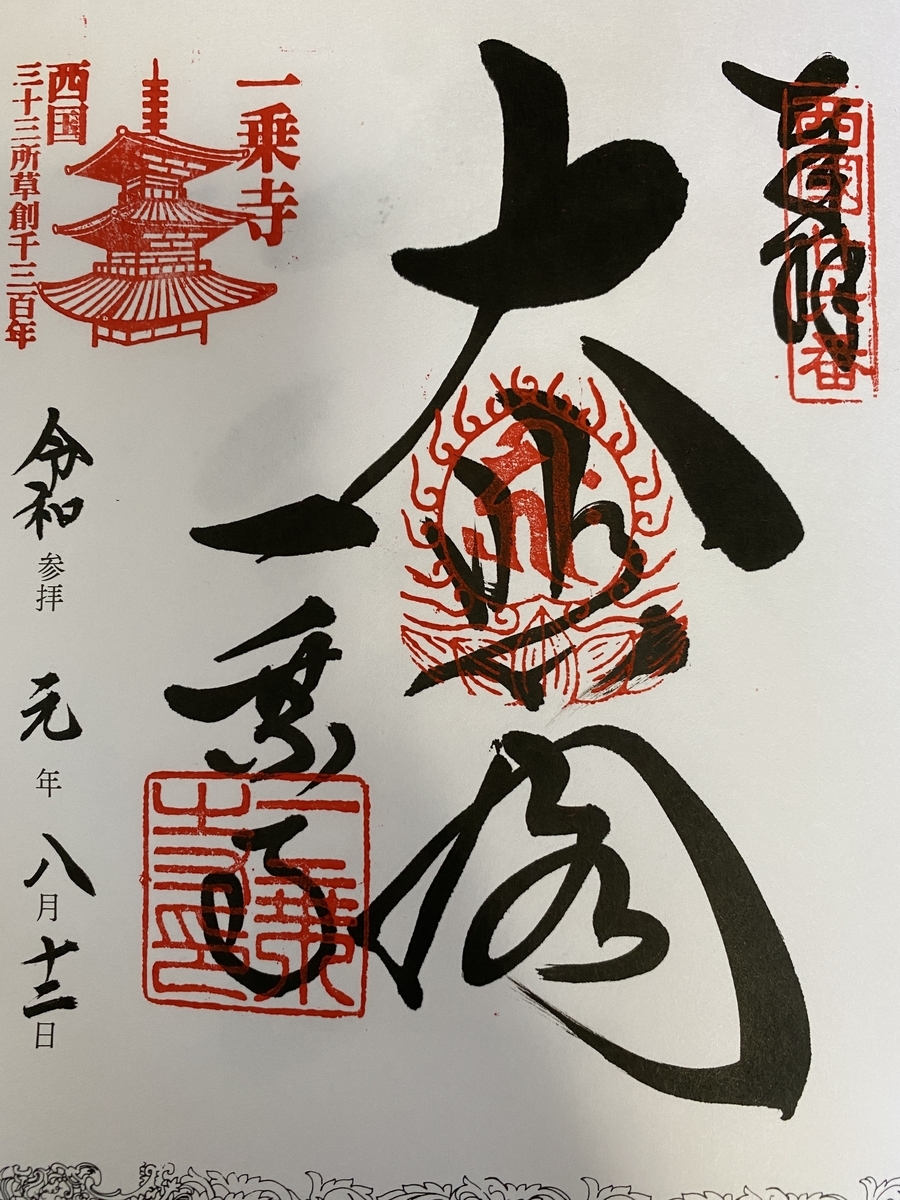 奉拝
西國廿六番
大悲閣
一乗寺
一乗寺印
一乗寺
西国
三十三所草創千三百年
令和 参拝 元年八月十二日